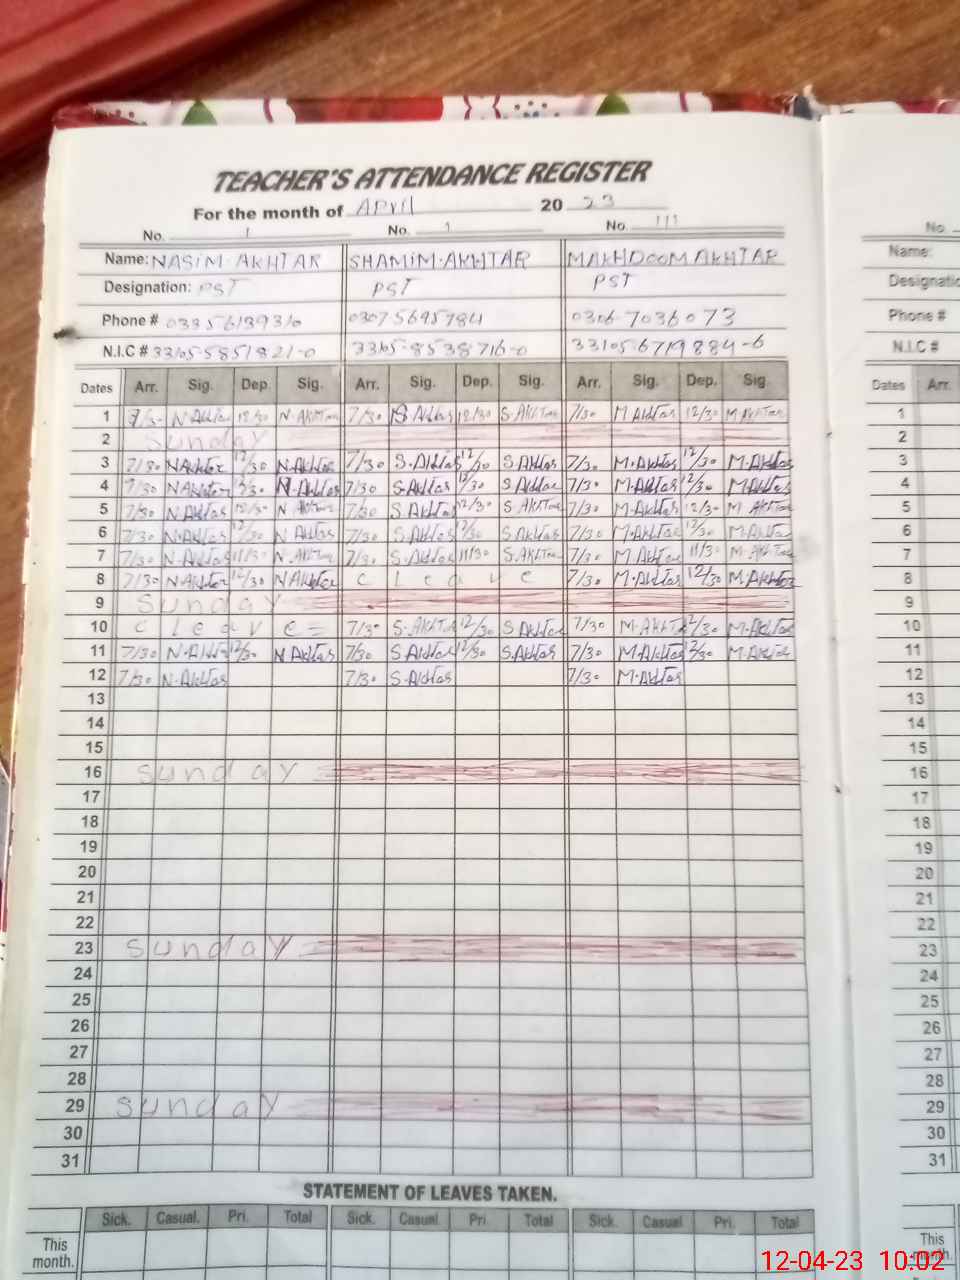 TEACHER'S ATTENDANCE REGISTER
For the month of April 20 23
No. 1 No. 1 No. 111 No.
Name: NASIM AKHTAR SHAMIM AKHTAR MAKHDOOM AKHTAR Name:
Designation: PST PST PST
Phone # 0307 5695784 0306 7036073 Phone #
N.I.C # 33105-5851821-0 33105-8538716-0 33105 6719884-6 N.I.C #
Dates Arr. Sig. Dep. Sig. Arr. Sig. Dep. Sig. Arr. Sig. Dep. Sig. Dates Arr.
1 N-Akhtar 12/30 N-AKHTAR 7/30 S.Akhtar 12/30 S.AKHTAR 7/30 M Akhtar 12/30 M AKHTAR 1
2 Sunday 2
3 7/30 NAkhtar 12/30 N.Akhtar 7/30 S.Akhtar 12/30 S.Akhtar 7/30 M.Akhtar 12/30 M.Akhtar 3
4 7/30 NAkhtar 12/30 N.Akhtar 7/30 S.Akhtar 12/30 S.Akhtar 7/30 M.Akhtar 12/30 M.Akhtar 4
5 7/30 N.Akhtar 12/30 N AKHTAR 7/30 S.Akhtar 12/30 S.AKHTAR 7/30 M.Akhtar 12/30 M AKHTAR 5
6 7/30 N.Akhtar 12/30 N Akhtar 7/30 S.Akhtar 12/30 S.Akhtar 7/30 M.Akhtar 12/30 M.Akhtar 6
7 7/30 N.Akhtar 11/30 N.AKHTAR 7/30 S.Akhtar 11/30 S.AKHTAR 7/30 M Akhtar 11/30 M-AKHTAR 7
8 7/30 N.Akhtar 12/30 NAkhtar C Leave 7/30 M.Akhtar 12/30 M Akhtar 8
9 Sunday 9
10 C leave = 7/30 S.AKHTAR 12/30 S Akhtar 7/30 M.AKHTAR 12/30 M.Akhtar 10
11 7/30 N.Akhtar 12/30 N Akhtar 7/30 S.Akhtar 12/30 S.Akhtar 7/30 M.Akhtar 12/30 M Akhtar 11
12 7/30 N.Akhtar 7/30 S.Akhtar 7/30 M.Akhtar 12
13 13
14 14
15 15
16 Sunday 16
17 17
18 18
19 19
20 20
21 21
22 22
23 Sunday 23
24 24
25 25
26 26
27 27
28 28
29 Sunday 29
30 30
31 31
STATEMENT OF LEAVES TAKEN.
Sick. Casual. Pri. Total Sick. Casual Pri. Total Sick. Casual Pri. Total
This month. This month.
12-04-23 10:02